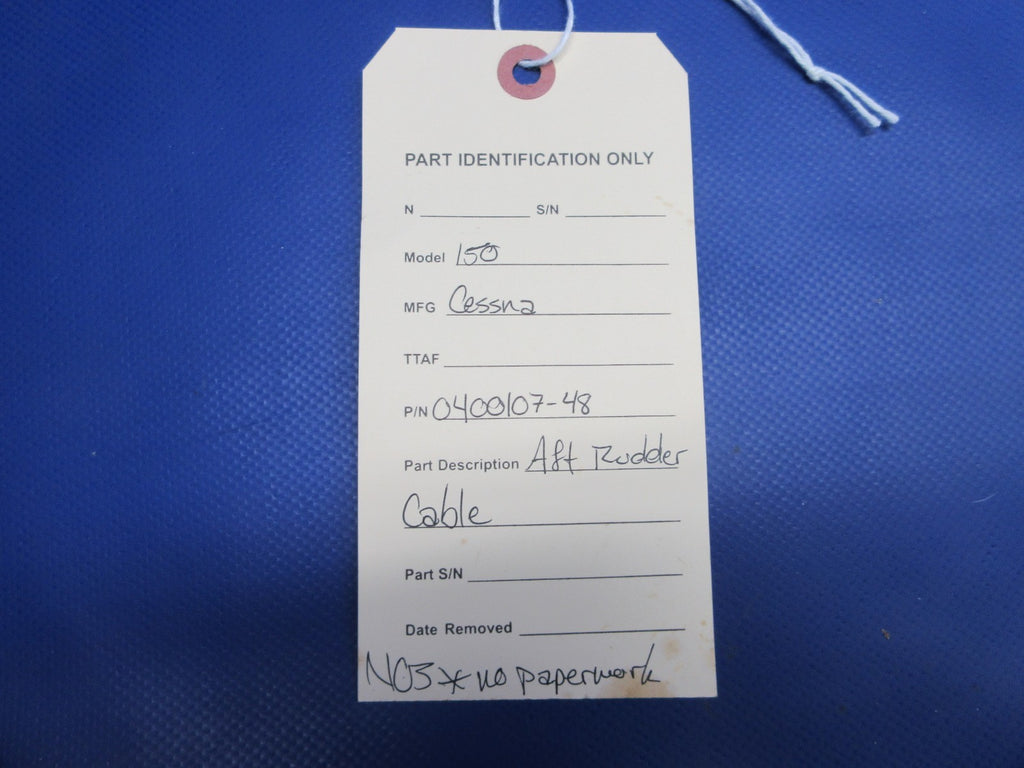 PART IDENTIFICATION ONLY
N S/N
Model 150
MFG Cessna
TTAF
P/N 0400107-48
Part Description Aft Rudder
Cable
Part S/N
Date Removed
NOS * no paperwork